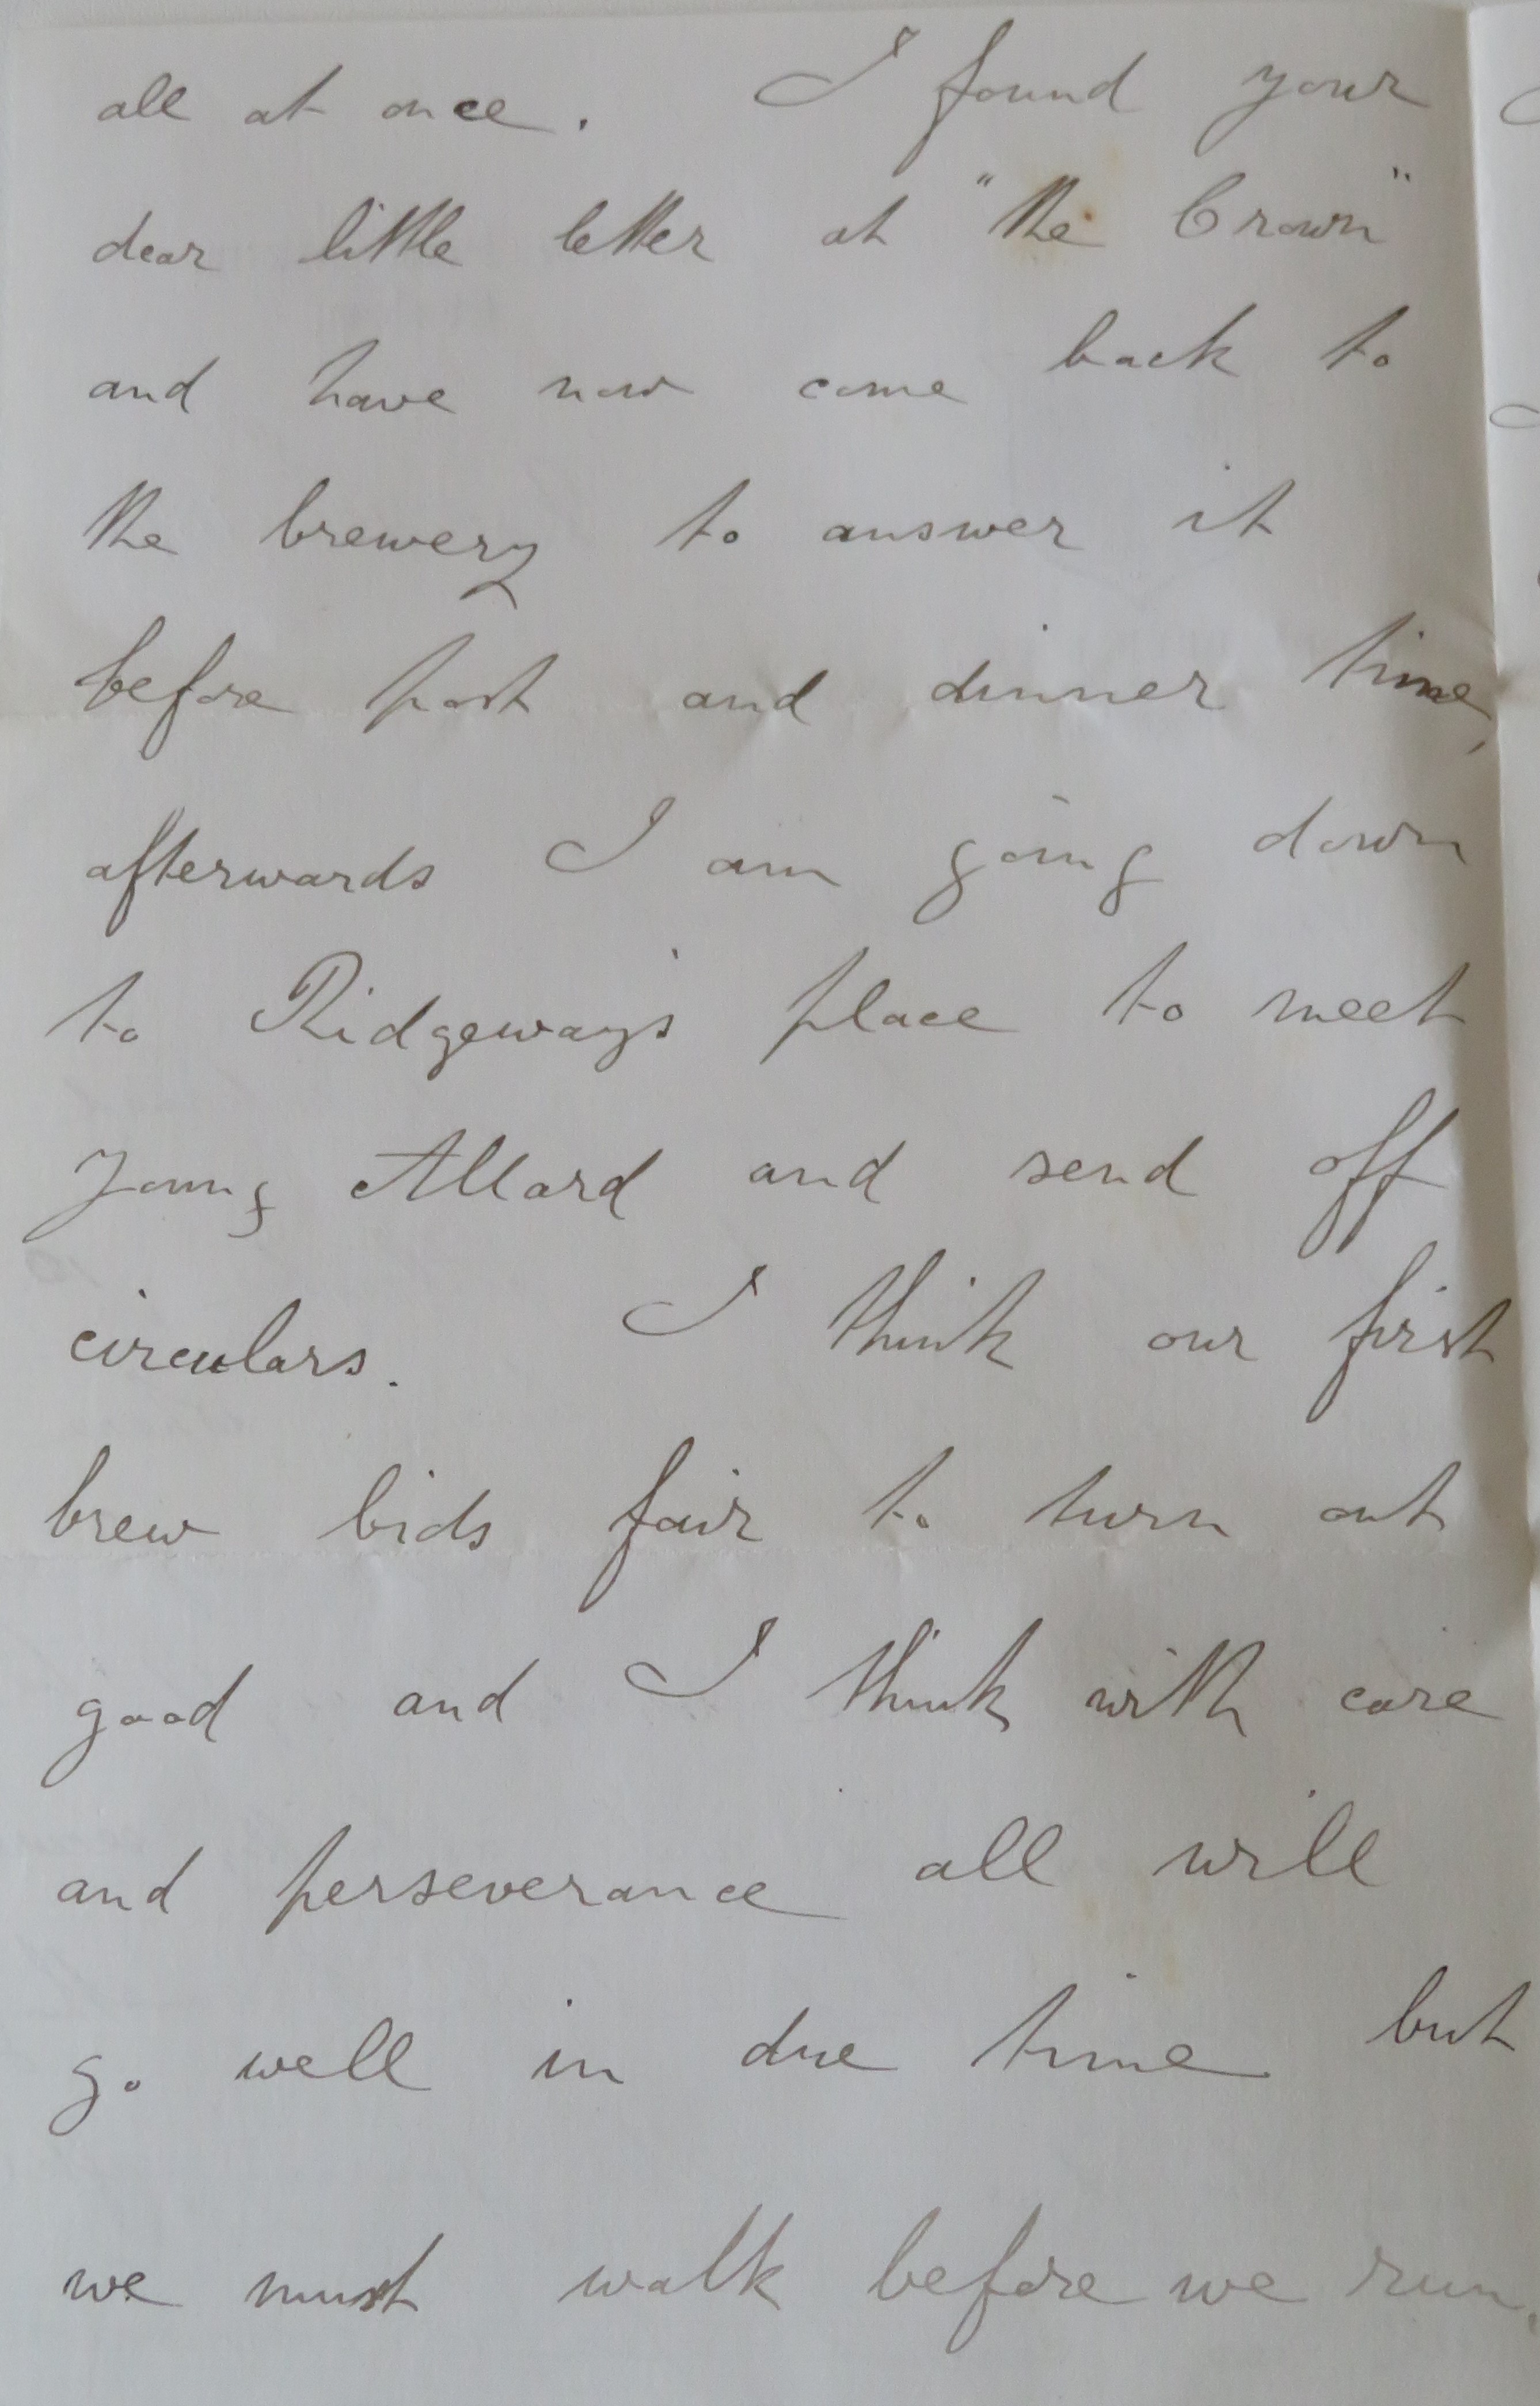 all at once. I found your
dear little letter at "the Crown"
and have now come back to
the brewery to answer it
before post and dinner time,
afterwards I am going down
to Ridgeway's place to meet
young Allard and send off
circulars. I think our first
brew bids fair to turn out
good and I think with care
and perseverance all will
go well in due time but
we must walk before we run.